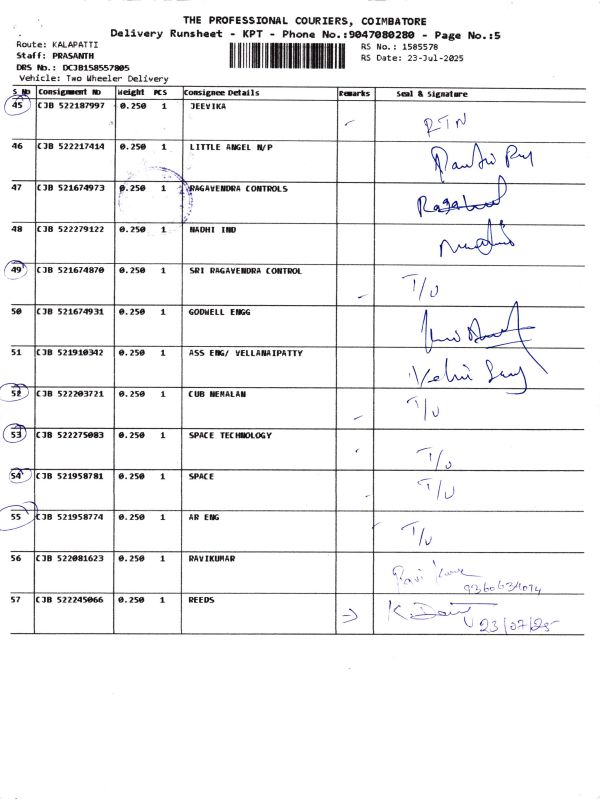 THE PROFESSIONAL COURIERS, COIMBATORE
Delivery Runsheet - KPT - Phone No.:9047080280 - Page No.:5
Route: KALAPATTI
RS No.: 1585578
Staff: PRASANTH
RS Date: 23-Jul-2025
DRS No.: DCJB158557805
Vehicle: Two Wheeler Delivery
S No Consignment No Weight PCS Consignee Details Remarks Seal & Signature
45 CJB 522187997 0.250 1 JEEVIKA RTN
46 CJB 522217414 0.250 1 LITTLE ANGEL N/P
47 CJB 521674973 0.250 1 RAGAVENDRA CONTROLS
48 CJB 522279122 0.250 1 NADHI IND
49 CJB 521674870 0.250 1 SRI RAGAVENDRA CONTROL T/U
50 CJB 521674931 0.250 1 GODWELL ENGG
51 CJB 521910342 0.250 1 ASS ENG/ VELLANAIPATTY
52 CJB 522203721 0.250 1 CUB NEMALAN T/U
53 CJB 522275083 0.250 1 SPACE TECHNOLOGY T/U
54 CJB 521958781 0.250 1 SPACE T/U
55 CJB 521958774 0.250 1 AR ENG T/U
56 CJB 522081623 0.250 1 RAVIKUMAR Ravi Kumar
57 CJB 522245066 0.250 1 REEDS
23/07/25